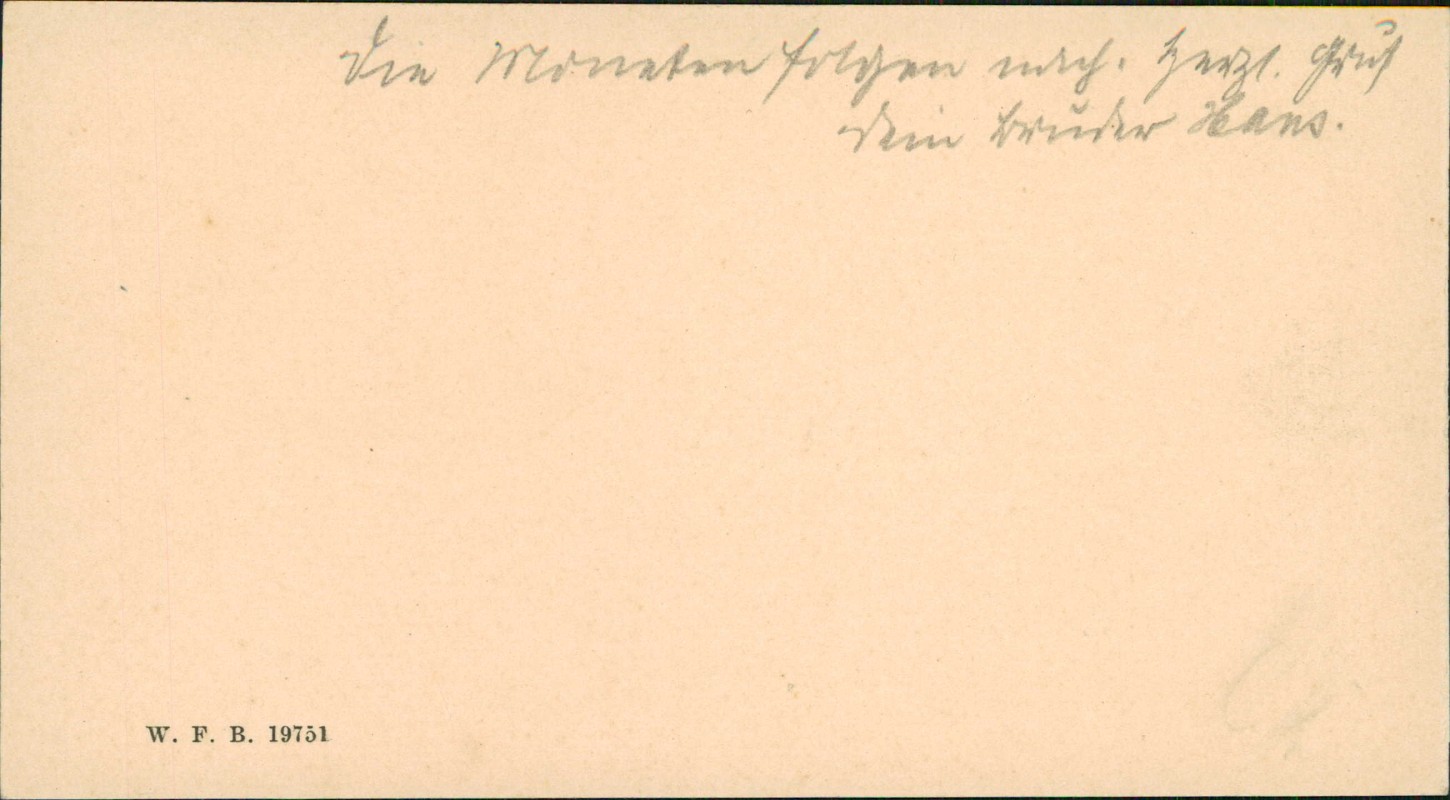 Die Moneten folgen nach. Herzl. Gruß
Dein Bruder Hans.
W. F. B. 19751